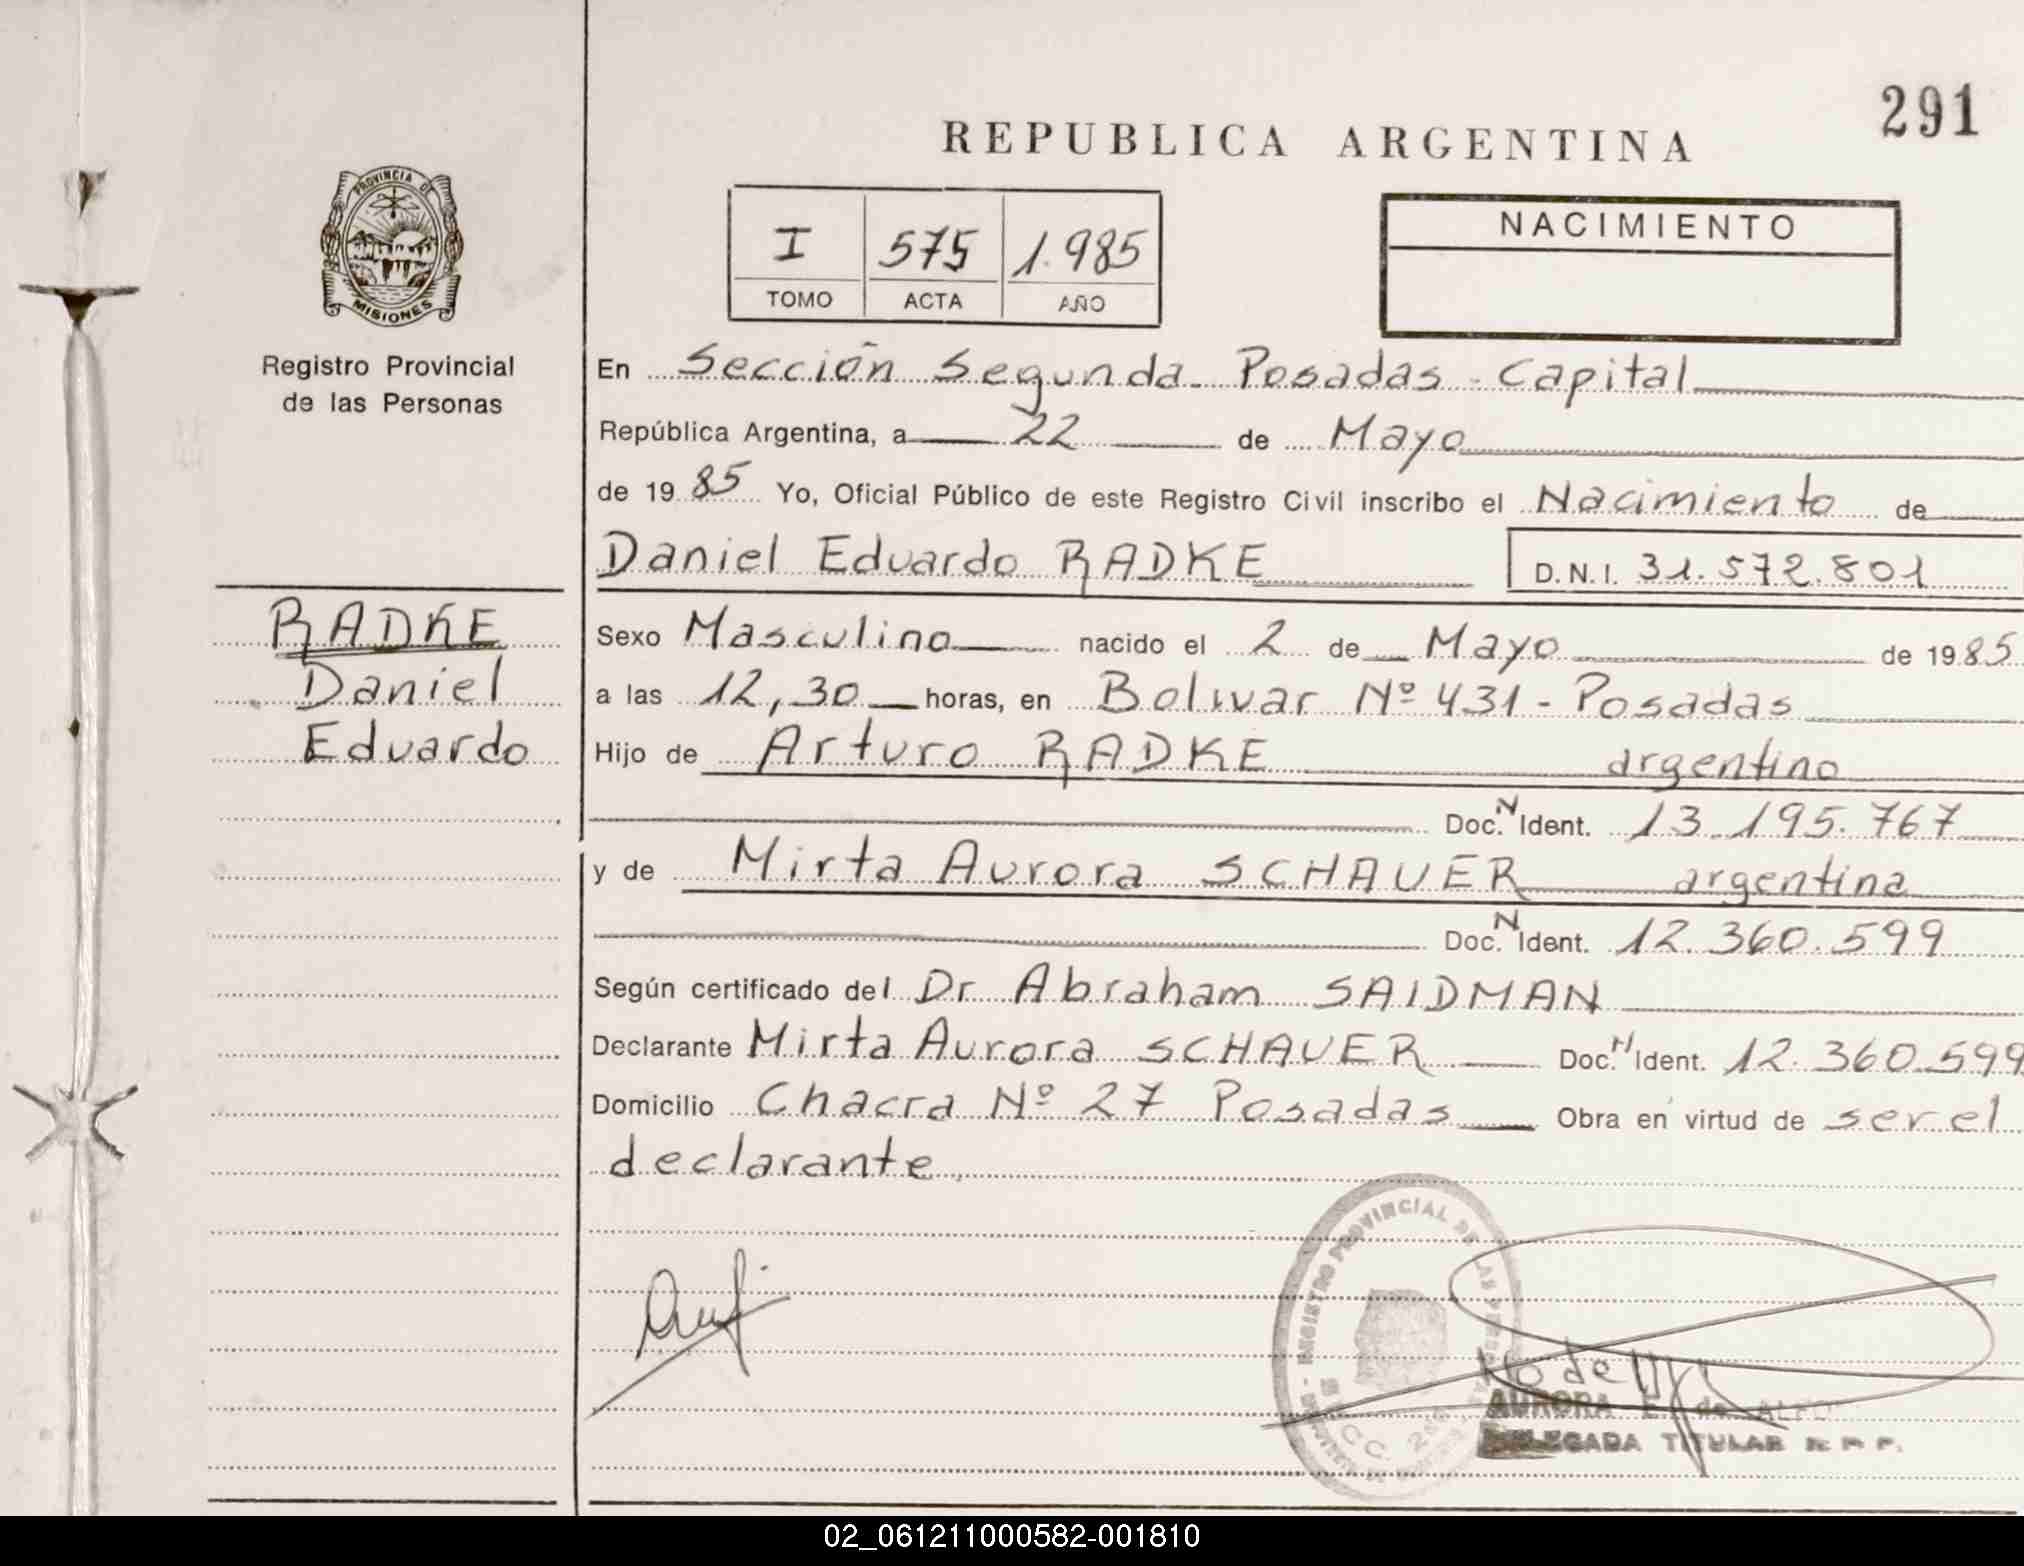 291
REPUBLICA ARGENTINA
PROVINCIA DE
MISIONES
Registro Provincial
de las Personas
I 575 1.985
TOMO ACTA AÑO
NACIMIENTO
En Sección Segunda - Posadas - Capital
República Argentina, a 22 de Mayo
de 1985 Yo, Oficial Público de este Registro Civil inscribo el Nacimiento de
Daniel Eduardo RADKE D.N.I. 31.572.801
RADKE
Daniel
Eduardo
Sexo Masculino nacido el 2 de Mayo de 1985
a las 12,30 horas, en Bolivar Nº 431 - Posadas
Hijo de Arturo RADKE argentino
Doc. N Ident. 13.195.767
y de Mirta Aurora SCHAUER argentina
Doc. N Ident. 12.360.599
Según certificado del Dr Abraham SAIDMAN
Declarante Mirta Aurora SCHAUER Doc. N Ident. 12.360.599
Domicilio Chacra Nº 27 Posadas Obra en virtud de ser el
declarante
REGISTRO PROVINCIAL DE LAS PERSONAS
AURORA E. de
DELEGADA TITULAR R.P.P.
02_061211000582-001810